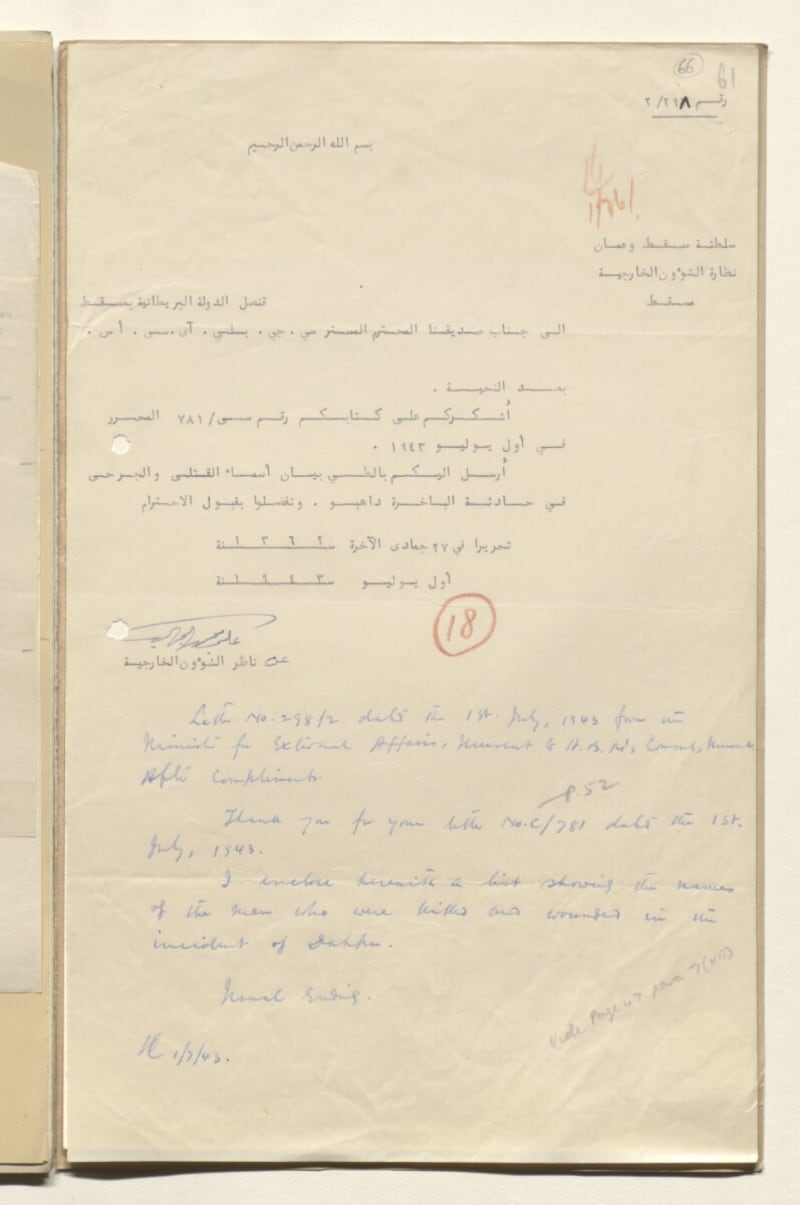 66
61
رقم ٢/٢٩٨
بسم الله الرحمن الرحيم
1/7
سلطنة مسقط وعمان
نظارة الشؤون الخارجية
مسقط
قنصل الدولة البريطانية بمسقط
الى جناب صديقنا المحترم المستر سي . جي . بلي . آي . سي . أس .
بعد التحية .
أشكركم على كتابكم رقم سي/٧٨١ المحرر
في أول يوليو ١٩٤٣ .
أرسل اليكم بالطي بيان أسماء القتلى والجرحى
في حادثة الباخرة داهبو . وتفضلوا بقبول الاحترام
تحريرا في ٢٧ جمادى الآخرة سنة ١٣٦٢
أول يوليو سنة ١٩٤٣
18
عن ناظر الشؤون الخارجية
Letter No. 298/2 dated the 1st. July, 1943 from the
Minister for External Affairs, Muscat to H.B.M's Consul, Muscat.
After Compliments.
p.52
Thank you for your letter No.C/781 dated the 1st.
July, 1943.
I enclose herewith a list showing the names
of the men who were killed and wounded in the
incident of Dahpu.
Usual Ending.
Vide page 47 para 7(VII)
1/7/43.